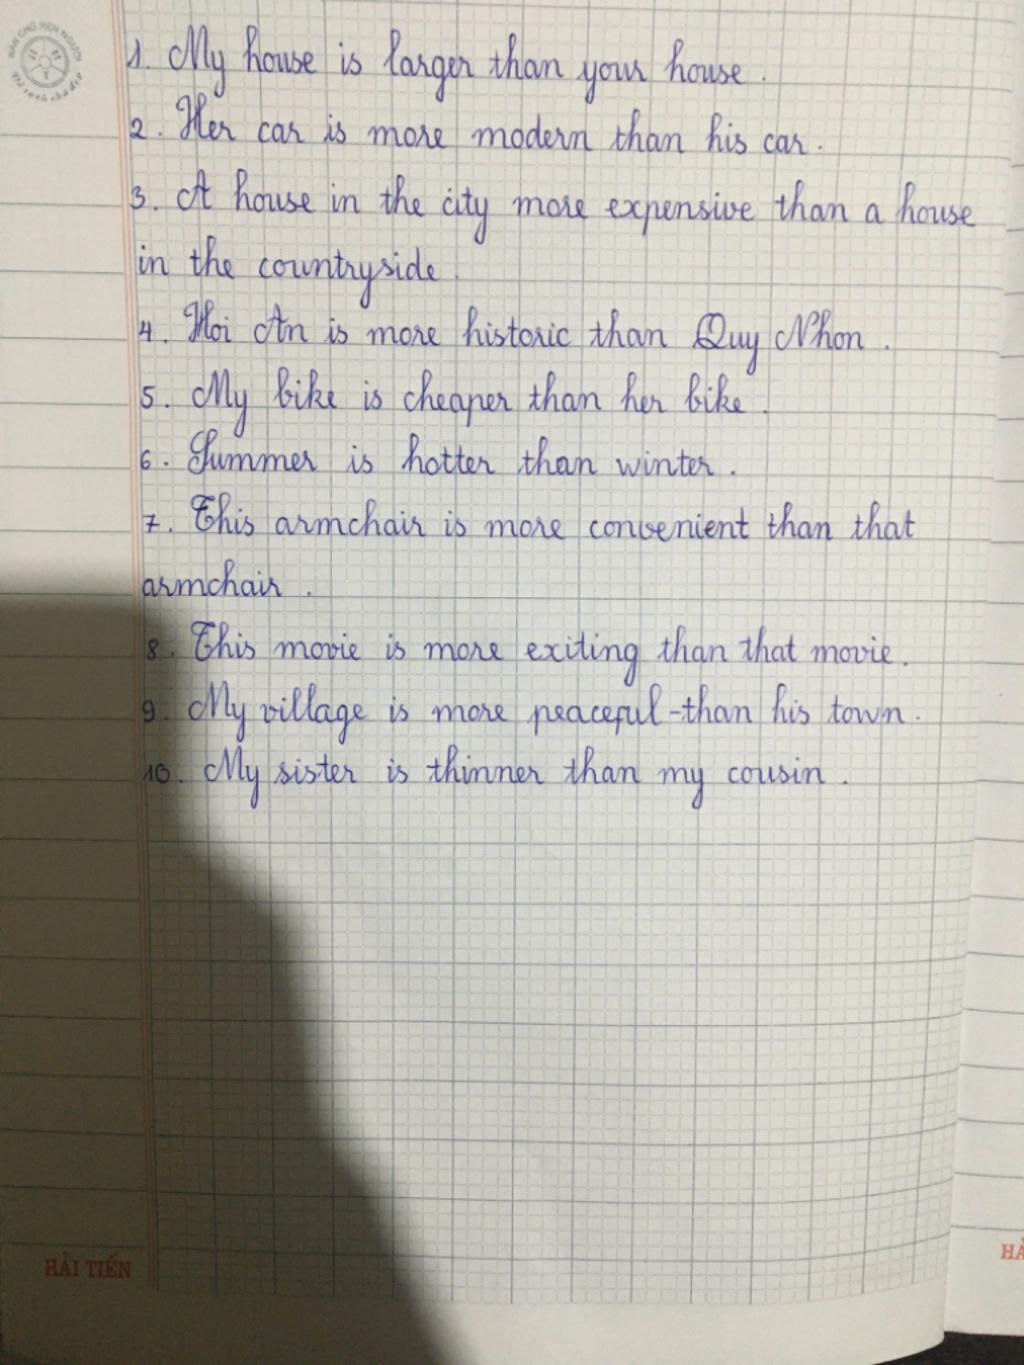 NÂN CHỮ RÈN NGƯỜI
1. My house is larger than your house.
2. Her car is more modern than his car.
3. A house in the city more expensive than a house
in the countryside.
4. Hoi An is more historic than Quy Nhon.
5. My bike is cheaper than her bike.
6. Summer is hotter than winter.
7. This armchair is more convenient than that
armchair.
8. This movie is more exiting than that movie.
9. My village is more peaceful than his town.
10. My sister is thinner than my cousin.
HẢI TIẾN
HẢ